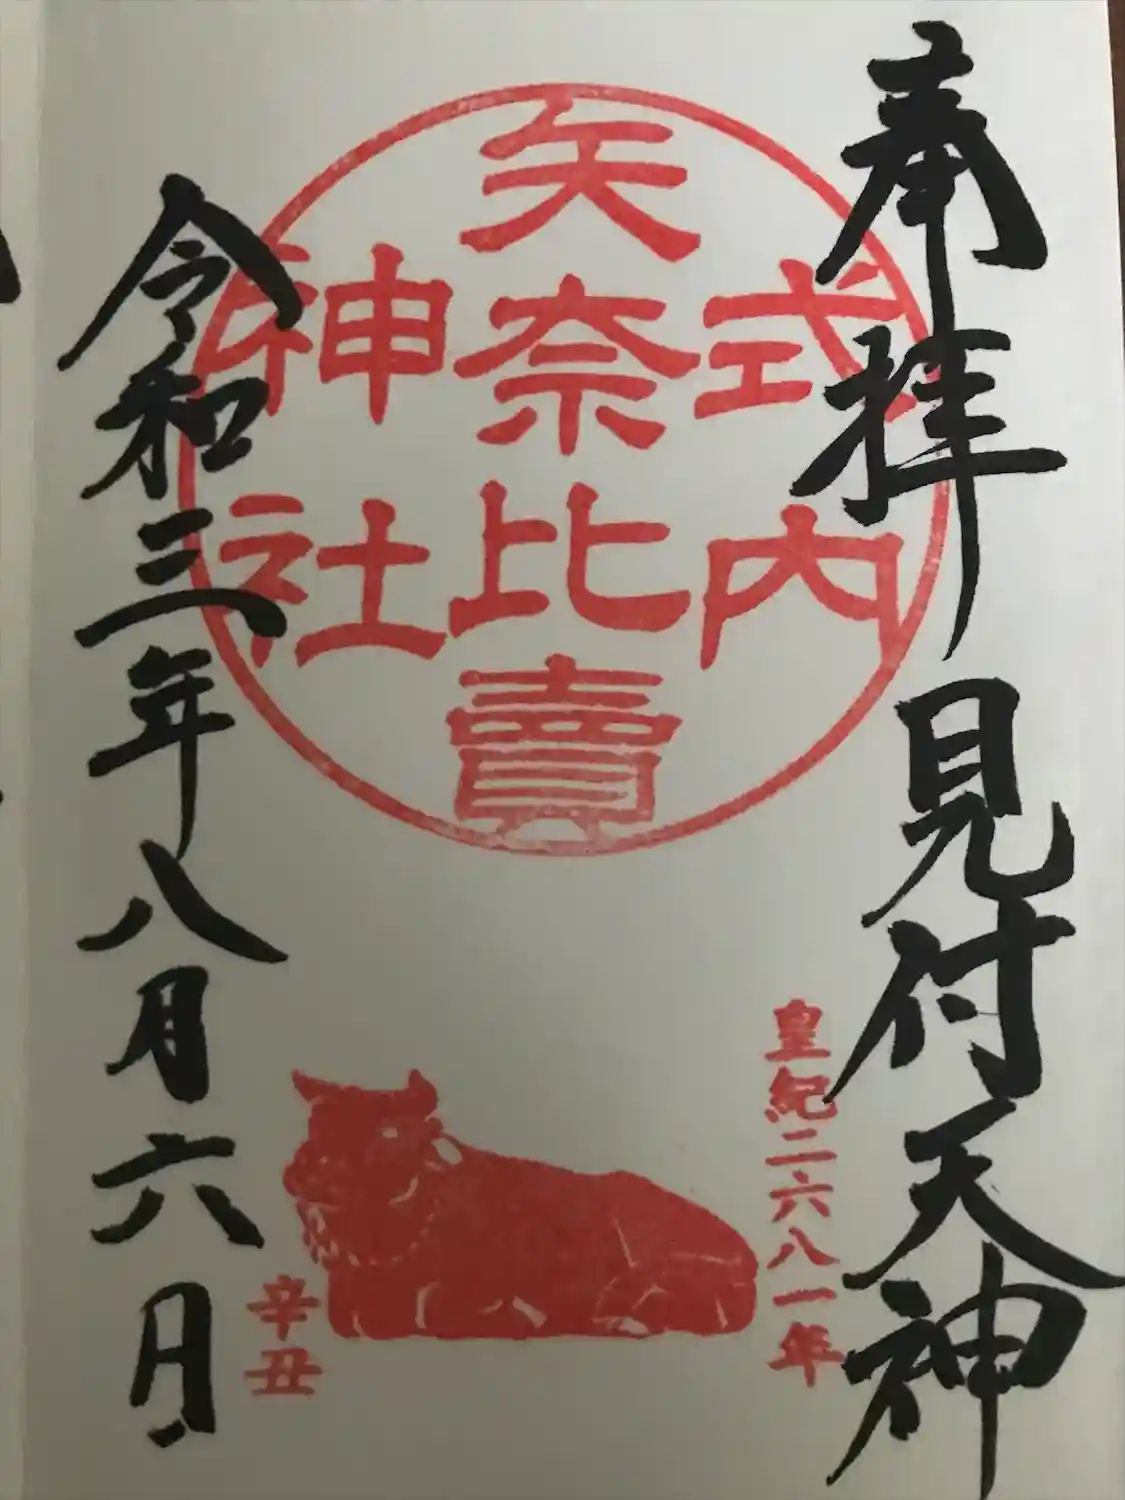 奉拝 見付天神
式内
矢奈比賣
神社
皇紀二六八一年
辛丑
令和三年八月六日